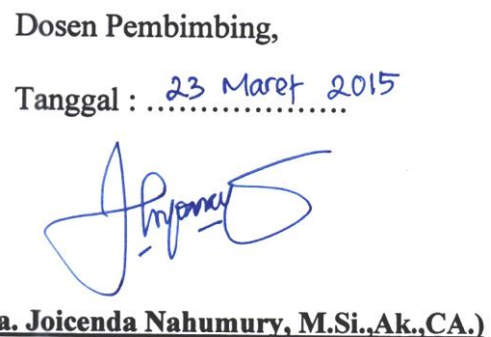 Dosen Pembimbing,
Tanggal : 23 Maret 2015
a. Joicenda Nahumury, M.Si.,Ak.,CA.)